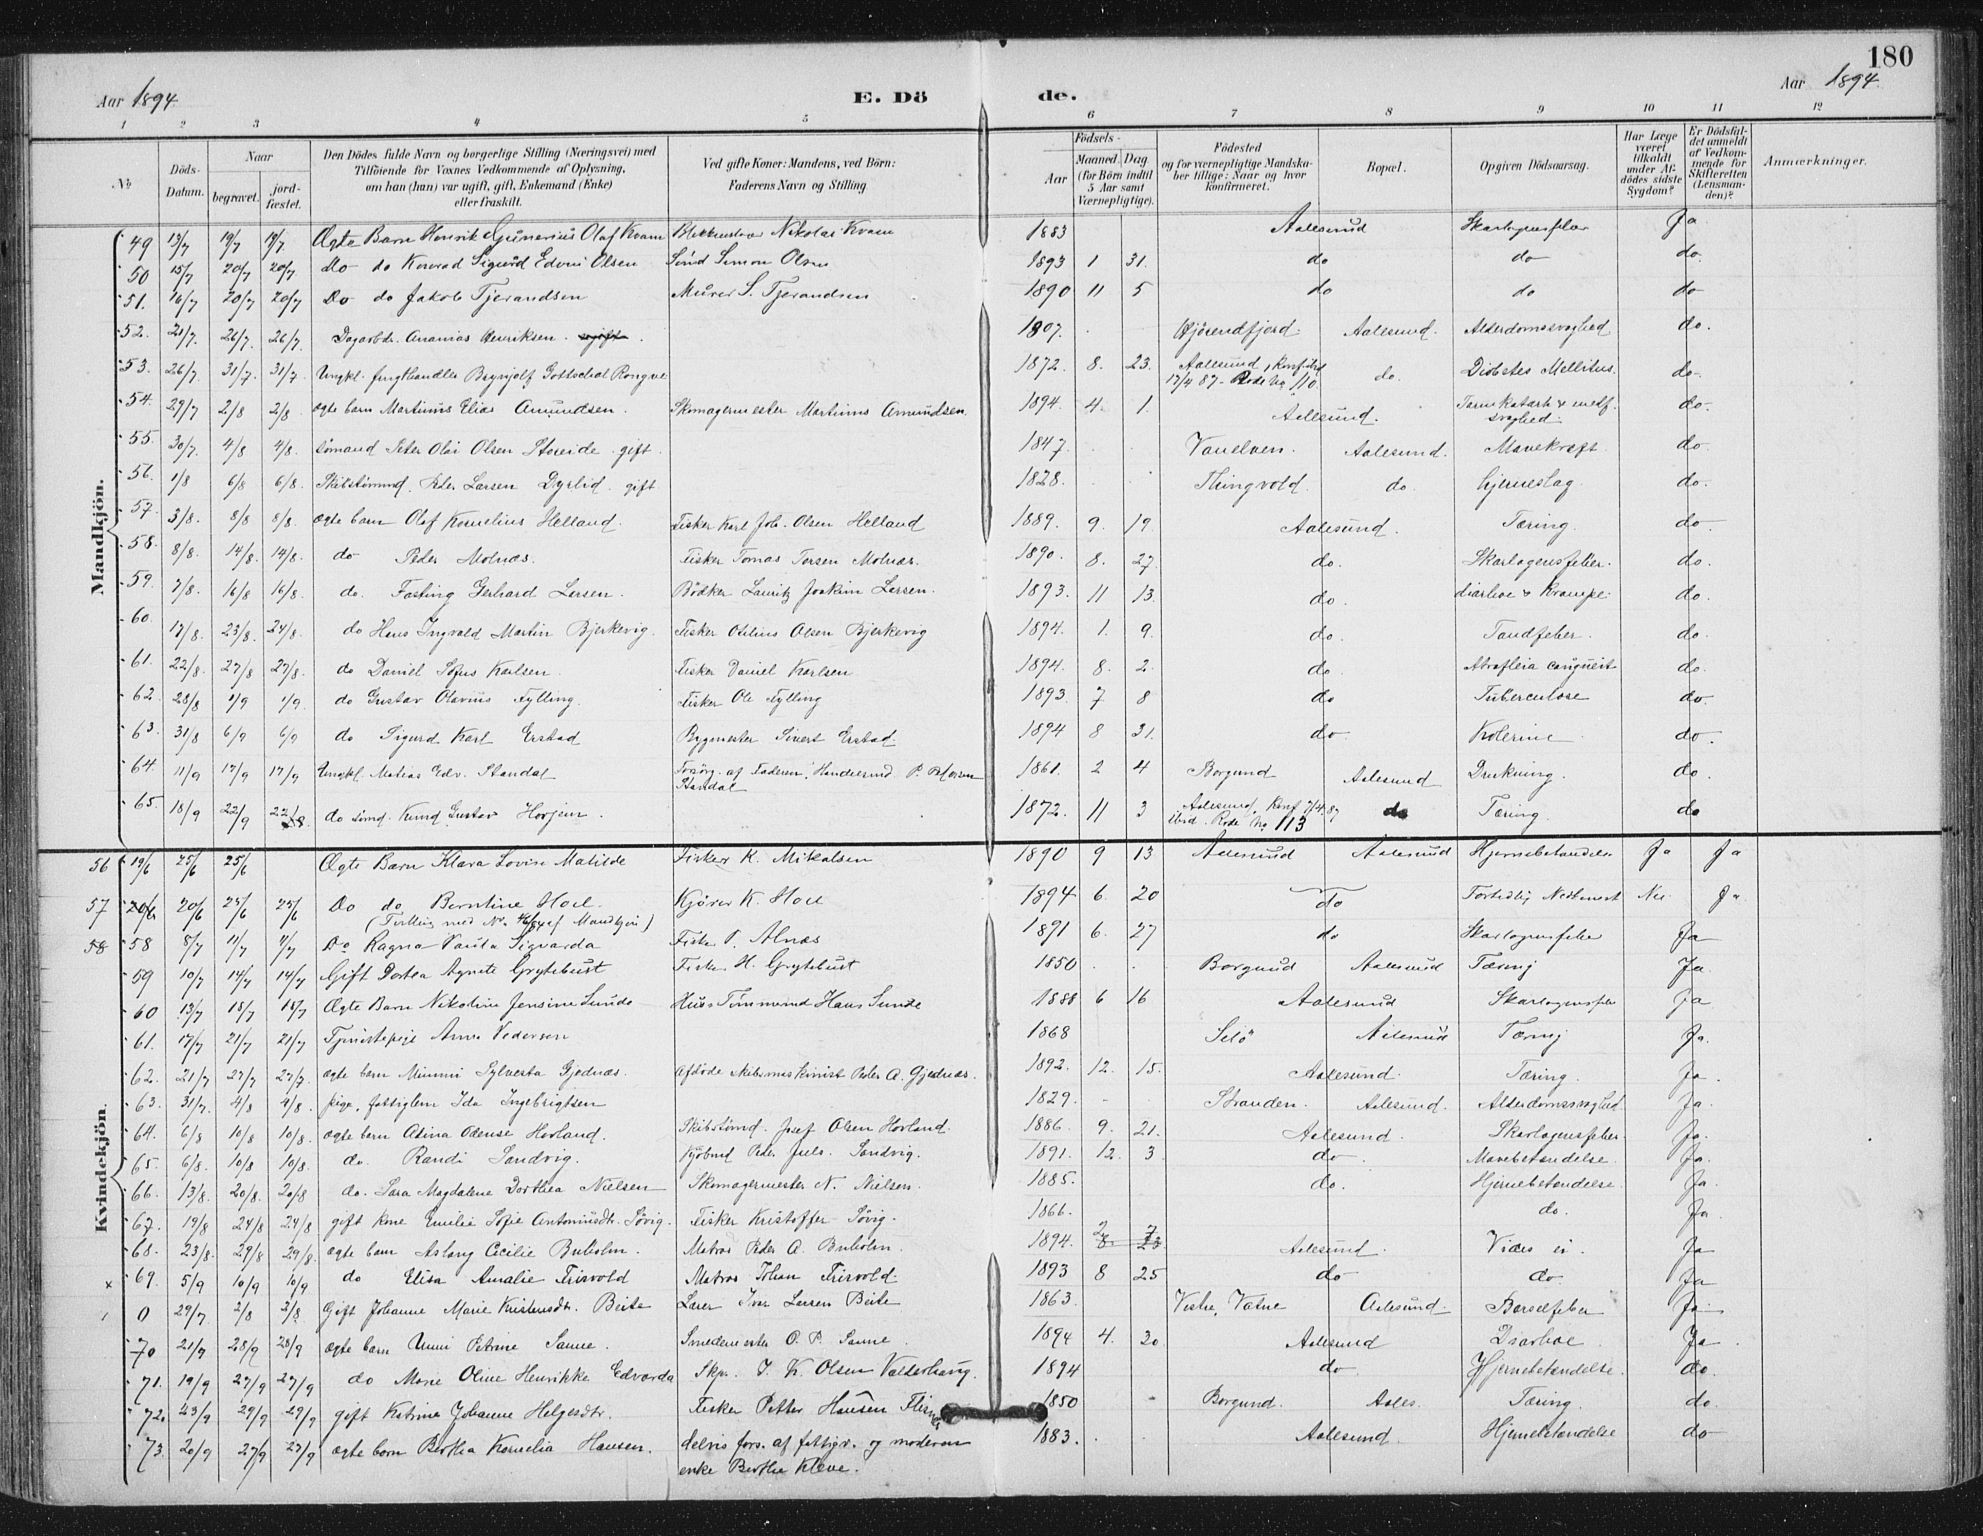 180
Aar 1894. E. Dö de. Aar 1894.
1 2 3 4 5 6 7 8 9 10 11 12
No. Döds-Datum. Naar begravet. jord-fæstet. Den Dödes fulde Navn og borgerlige Stilling (Næringsvei) med Tilföiende for Voxnes Vedkommende af Oplysning, om han (hun) var ugift, gift, Enkemand (Enke) eller fraskilt. Ved gifte Koner: Mandens, ved Börn: Faderens Navn og Stilling. Födsels- Aar Maaned Dag (for Börn indtil 5 Aar samt Værnepligtige). Födested og for værnepligtige Mandskaber tillige: Naar og hvor konfirmeret. Bopæl. Opgiven Dödsaarsag. Har Læge været tilkaldt under Afdödes sidste Sygdom? Er Dödsfaldet anmeldt af Vedkommende for Skifteretten (Lensmanden)? Anmærkninger.
Mandkjön.
49 13/7 19/7 19/7 Ægte Barn Henrik Gunerius Olaf Kvam Blikkenslaer Nikolai Kvam 1883 Aalesund Skarlagensfeber Ja
50 15/7 20/7 20/7 Do do Konrad Sigurd Edvin Olsen Smd Simon Olsen 1893 1 31. do do do.
51. 16/7 20/7 20/7 Do do Jakob Tjerandsen Murer S. Tjerandsen 1890 11 5 do do do
52. 21/7. 26/7. 26/7. Dagarbdr. Ananias Henriksen. 1807. Hjörendfjord. Aalesund. Alderdomssvaghed do.
53. 26/7. 31/7. 31/7. Ungkl. Brynjolf Gottschal Rongve 1872. 8. 23. Aalesund, Konf. ibid 17/4 87 - Rode No 110. do. Diabetes Mellitus. do.
54. 29/7 2/8 2/8 ægte barn Martinus Elias Amundsen. Skomagermester Martinus Amundsen. 1894. 4. 1. Aalesund. Tarmkatarh & medf. svaghed. do.
55. 30/7. 4/8 4/8. sömand Peter Olai Olsen Storeide. gift. 1847. Vanelven. Aalesund. Mavekræft. do
56. 1/8 6/8 6/8. Skibstömmd. Peder Larsen Dyrlid. gift 1828. Thingvold. do. hjerneslag do.
57. 3/8. 8/8 8/8. ægte barn Olaf Kornelius Helland. Fisker Karl Joh. Olsen Helland 1889. 9. 19 Aalesund. Tæring. do.
58. 8/8. 14/8. 14/8. do Peder Molnæs. Fisker Tomas Torsen Molnæs. 1890. 8. 27 do. Skarlagensfeber. do.
59. 7/8. 16/8 16/8. do. Fasting Gerhard Larsen. Bödker Lauritz Joakim Larsen. 1893. 11 13. do. diarhoe & Krampe. do.
60. 17/8. 23/8. 24/8. do Hans Ingvald Martin Bjerkevig. Fisker Otelius Olsen Bjerkevig 1894. 1. 9. do. Tandfeber. do.
61. 22/8. 27/8 27/8. do Daniel Sofus Karlsen. Fisker Daniel Karlsen 1894. 8. 2. do. Atrofieia congineit do.
62. 28/8 1/9 1/9. do Gustav Olavius Fylling. Fisker Ole Fylling 1893. 7 8 do Tuberculose do.
63. 31/8 6/9 6/9 do Sigurd Karl Erstad Bygmester Sivert Erstad 1894 8 31. do. Kolerine do.
64. 11/9 17/9 17/9 Ungkl. Matias Edv. Standal Forsörg. af Faderen, Handelsmd P. Petersen Standal 1861. 2 4 Borgund Aalesund Drukning. do.
65. 18/9 22/9 do sömd. Knud Gustav Horjem. 1872. 11 3 Aalesund, Konf 7/4. 87 ibid. Rode No 113 do Tæring. do
Kvindekjön.
56 19/6 25/6 25/6 Ægte Barn Klara Lovise Matilde Fisker K. Mikalsen 1890 9 13 Aalesund Aalesund Hjernebetændelse Ja Ja
57 20/6 20/6 25/6 25/6 Do do Berntine Hoel Kjörer K. Hoel 1894 6. 20 do Fortidlig Nedkomst Nei. Ja.
(Tvilling med No. af Mandkjön)
58 58 8/7 11/7 11/7 Do Ragna Paula Sigvarda Fisker P. Alnæs 1891 6. 27 do Skarlagensfeber Ja
59 10/7 14/7 14/7 Gift Dortea Agnete Grytebust Fisker H. Grytebust 1850 Borgund Aalesund Tæring Ja.
60 13/7 18/7 18/7 Ægte Barn Nikoline Jensine Sunde Hus Tömmermd Hans Sunde 1888 6 16 Aalesund Skarlagensfeber Ja
61. 17/7 21/7 21/7 Tjenestepige Anna Pedersen 1868 Selö Aalesund Tæring Ja.
62. 21/7 27/7 27/7. ægte barn Minni Sylvesta Gjednæs. Afdöde Skibsmaskinist Peder A. Gjednæs. 1892. 12. 15. Aalesund. Tæring. Ja.
63. 31/7. 4/8 4/8. pige, fattiglem Ida Ingebrigtsen 1829. Stranden. Aalesund. Alderdomssvaghed Ja.
64. 6/8 10/8 10/8. ægte barn Adina Odense Hovland. Skibstömd. Josef Olsen Hovland. 1886. 9. 21. Aalesund. Skarlagensfeber. Ja.
65. 6/8. 10/8 10/8. do. Randi Sandvig. Kjöbmd Peder Juls. Sandvig. 1891. 12. 3. do. Mavebetændelse. Ja.
66. 13/8. 20/8. 20/8 do. Sara Magdalene Dorthea Nielsen Skomagermester N. Nielsen. 1885. do. Hjernebetændelse. Ja.
67. 19/8 24/8 24/8 gift kone Emilie Sofie Antoniusdtr. Sövig. Fisker Kristoffer Sövig. 1866. do. Ja.
68. 23/8. 29/8 29/8. ægte barn Aslaug Cecilie Buholm. Matros Peder A. Buholm 1894. 2 7 Aalesund. Vides ei. Ja
× 69. 5/9 10/9 10/9 do Elisa Amalie Trisvold Matros Johan Trisvold. 1893 8 25 do do. Ja
0 29/7 2/8 2/8 Gift Johanne Marie Kristensdtr. Beite Larer Iver Larsen Beite 1863. Vestre, Vatne Aalesund. Barselfeber Ja.
70 21/9 28/9 28/9 ægte barn Unni Petrine Sanne. Smedemester O. P. Sanne. 1894 4. 20 Aalesund Diarhoe Ja.
71. 19/9 27/9 27/9 do Marie Oline Henrikke Edvarda Skpr. J. K. Olsen Valderhaug. 1894 do. Hjernebetændelse. do.
72. 23/9 29/9 29/9 gift Katrine Johanne Helgesdtr. Fisker Petter Hansen Flisnæs 1850 Borgund. Aales. Tæring. do.
73. 20/9 27/9 27/9 ægte barn Berthea Kornelia Hansen. delvis fors. af fattigv. og moderen 1883. Aalesund. Hjernebetændelse do
enke Berthe Kleve.